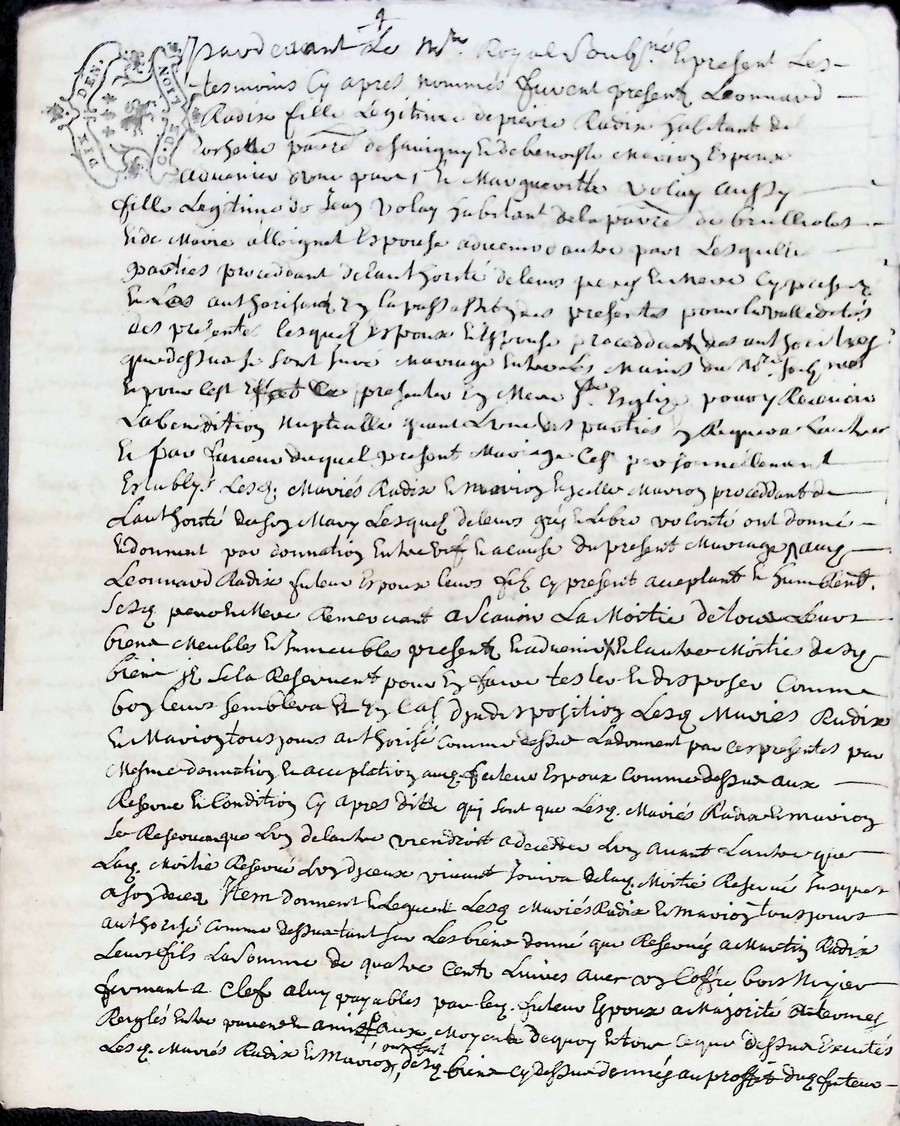 DIX DEN: G. D. LION
Pardevant Le Nre Royal Soubsné En present Les
tesmoins Cy apres nommés furent present Leonnard
Radix fille Légitime de pierre Radix habitant de
parre de Savigny Et de benoiste Marion Espoux
advenier d'une part, Et Margueritte volay aussy
fille Legitime de Jean volay habitant de la parre de brullioles
Et de Marie Espouse advenir d'autre part Lesquelle
parties proceddant de lauthorité de leurs peres Et Mere Cy present
Et Les authorisant presentes pour la vallidité
des presentes lesquels Espoux Et Espouse proceddant des authorités
que dessus se sont Juré Mariage Entre Les Mains du Nre soubsné
Et pour cest presenter En Mere Ste Esglize pour y Recevoir
La benedition Nuptialle quant L'une des parties En Requera Lautre
Et par faveur duquel present Mariage Cest personnellement
Establys Lesq. Mariés Radix Et marion Et Marion proceddant de
Lauthorité de son Mary Lesques de leurs grés Et Libre volonté ont donné
Et donnent par donnation Entre vif Et a cause du present Mariage aud
Leonnard Radix futeur Espoux leurs fils cy present acceptant Et humblent.
Sesq pere Et Mere Remerciant a Scavoir La Moitie de tous Leurs
biens Meubles Et Immeubles present Et advenir Et Lautre Moitié desq
biens Se la Reservent pour En faire tester Et disposer Comme
bon leurs semblera Et En Cas d'indisposition Lesq. Mariés Radix
Et Marion tousjours authorisé Comme dessus La donnent par ces presentes par
Mesme donnation Et acceptation aud. futeur Espoux Comme dessus aux
Reserve Et Condition Cy apres dite qui sont que Lesq. Mariés Radix Et marion
Se Reservent que L'un de lautre viendroit a decedder L'un avant Lautre que
Laq. Moitié Reservé L'un d'iceux vivant Jouira de laq. Moitié Reservé Jusques
a son deces Item donnent Et Leguent Lesq. Mariés Radix Et marion tousjours
authorisé Comme dessus tant sur Les biens donné que Reservés a Martin Radix
Leurs fils La Somme de quatre Cents Livres avec un Coffre bois Noyier
fermant a Clef a luy payables par led. futeur Espoux a Majorité termes
Reglés Entre parens Et amis aux Moyents de quoy Et tout ce que dessus Excutés
Lesq. Mariés Radix Et Marion desq. biens cy dessus donnés au proffit dud futeur